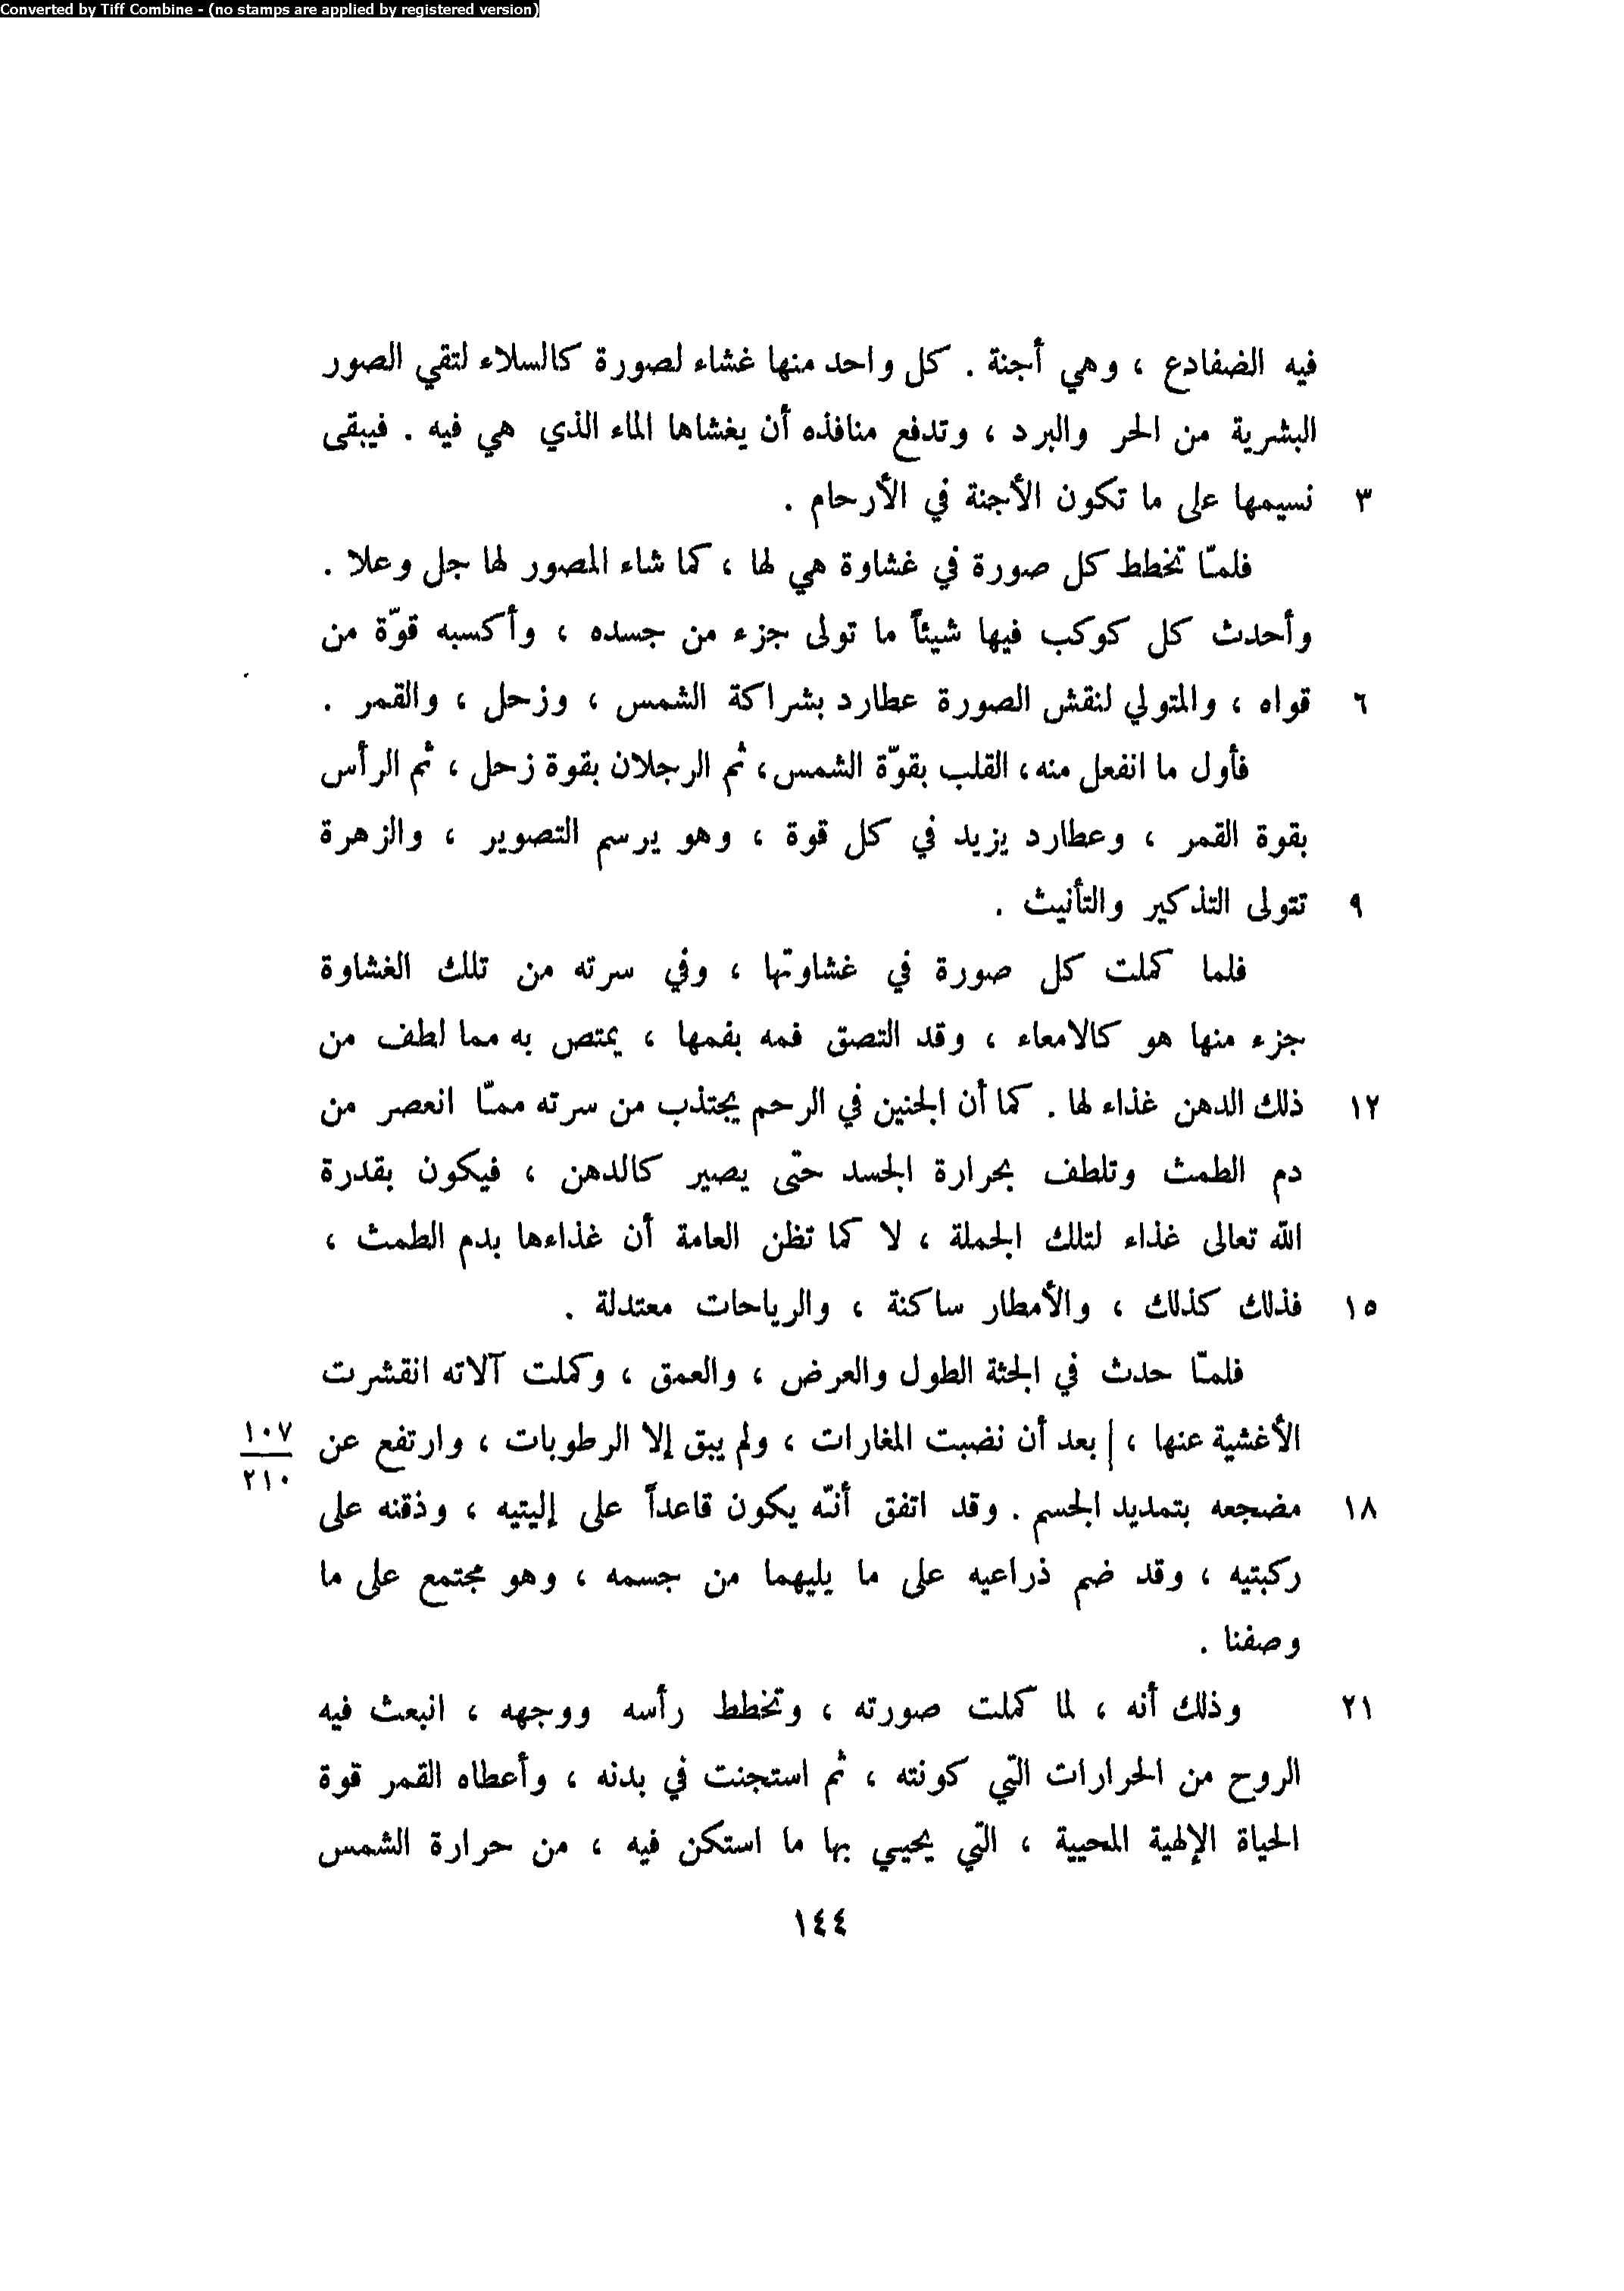 Converted by Tiff Combine - (no stamps are applied by registered version)
فيه الضفادع ، وهي أجنة . كل واحد منها غشاء لصورة كالسلاء لتقي الصور
البشرية من الحر والبرد ، وتدفع منافذه أن يغشاها الماء الذي هي فيه . فيبقى
٣ نسيمها على ما تكون الأجنة في الأرحام .
فلمّا تخطط كل صورة في غشاوة هي لها ، كما شاء المصور لها جل وعلا .
وأحدث كل كوكب فيها شيئاً ما تولى جزء من جسده ، وأكسبه قوّة من
٦ قواه ، والمتولي لنقش الصورة عطارد بشراكة الشمس ، وزحل ، والقمر .
فأول ما انفعل منه، القلب بقوّة الشمس، ثم الرجلان بقوة زحل ، ثم الرأس
بقوة القمر ، وعطارد يزيد في كل قوة ، وهو يرسم التصوير ، والزهرة
٩ تتولى التذكير والتأنيث .
فلما كملت كل صورة في غشاوتها ، وفي سرته من تلك الغشاوة
جزء منها هو كالامعاء ، وقد التصق فمه بفمها ، يمتص به مما لطف من
١٢ ذلك الدهن غذاء لها . كما أن الجنين في الرحم يجتذب من سرته ممّا انعصر من
دم الطمث وتلطف بحرارة الجسد حتى يصير كالدهن ، فيكون بقدرة
الله تعالى غذاء لتلك الجملة ، لا كما تظن العامة أن غذاءها بدم الطمث ،
١٥ فذلك كذلك ، والأمطار ساكنة ، والرياحات معتدلة .
فلمّا حدث في الجثة الطول والعرض ، والعمق ، وكملت آلاته انقشرت
الأغشية عنها ، | بعد أن نضبت المغارات ، ولم يبق إلا الرطوبات ، وارتفع عن
١٠٧
٢١٠
١٨ مضجعه بتمديد الجسم . وقد اتفق أنّه يكون قاعداً على إليتيه ، وذقنه على
ركبتيه ، وقد ضم ذراعيه على ما يليهما من جسمه ، وهو مجتمع على ما
وصفنا .
٢١ وذلك أنه ، لما كملت صورته ، وتخطط رأسه ووجهه ، انبعث فيه
الروح من الحرارات التي كونته ، ثم استجنت في بدنه ، وأعطاه القمر قوة
الحياة الإلهية المحيية ، التي يحيي بها ما استكن فيه ، من حرارة الشمس
١٤٤